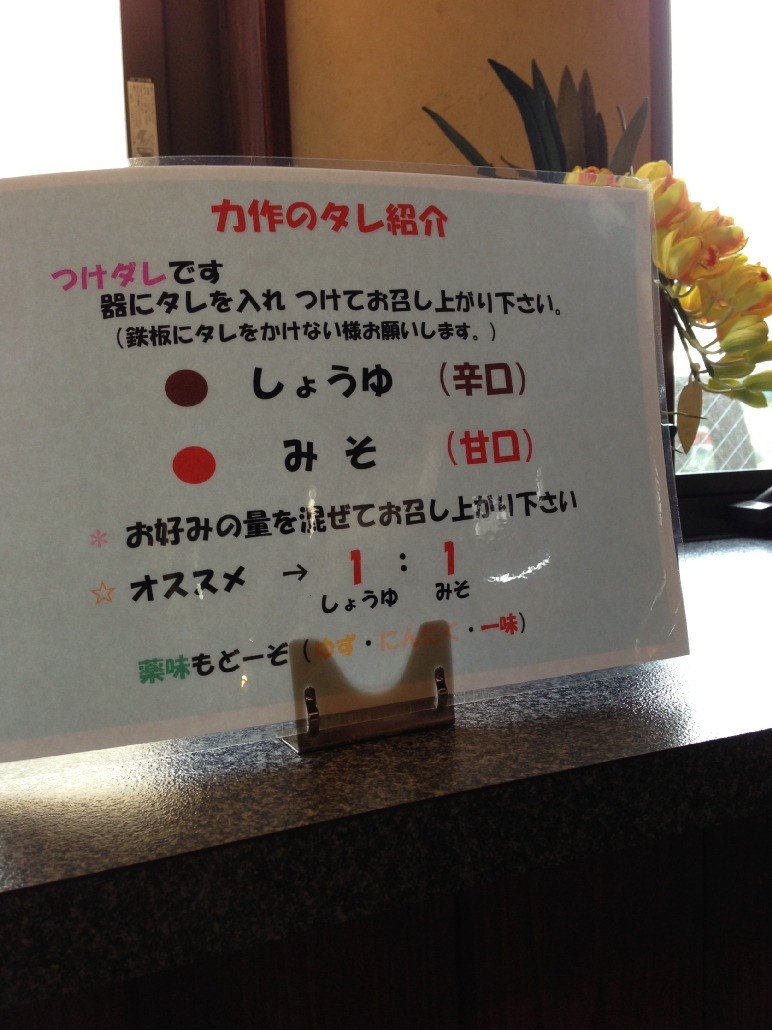 力作のタレ紹介
つけダレです
器にタレを入れ つけてお召し上がり下さい。
（鉄板にタレをかけない様お願いします。）
● しょうゆ （辛口）
● みそ （甘口）
* お好みの量を混ぜてお召し上がり下さい
☆ オススメ → 1 : 1
しょうゆ みそ
薬味もどーぞ（ゆず・にんにく・一味）